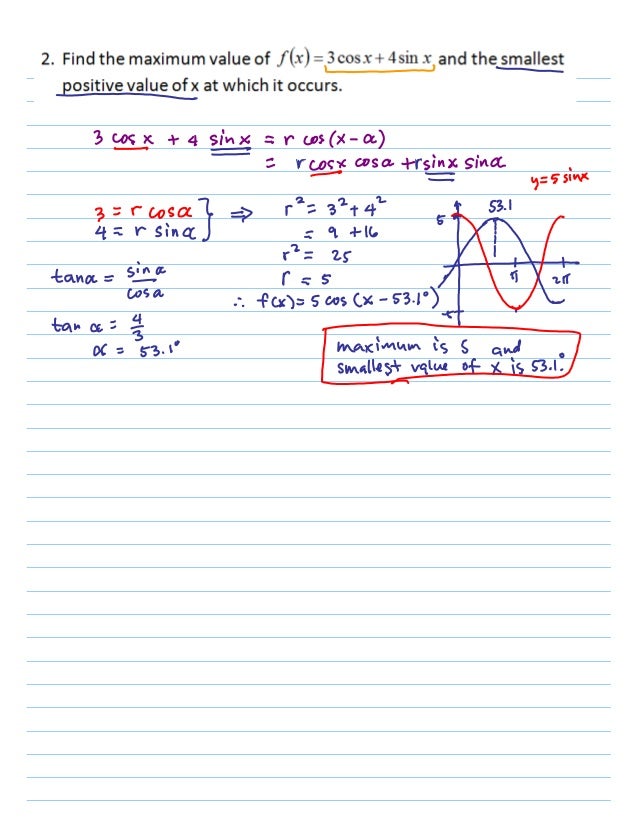 2. Find the maximum value of f(x) = 3cosx + 4sin x and the smallest
positive value of x at which it occurs.
3 cos x + 4 sin x = r cos (x - α)
= r cosx cosα + r sinx sinα
y = 5 sinx
3 = r cosα } ⇒ r² = 3² + 4²
4 = r sinα = 9 + 16
r² = 25
tanα = sinα / cosα
r = 5
∴ f(x) = 5 cos (x - 53.1°)
tan α = 4/3
α = 53.1°
5 53.1
π 2π
-5
maximum is 5 and
smallest value of x is 53.1°.